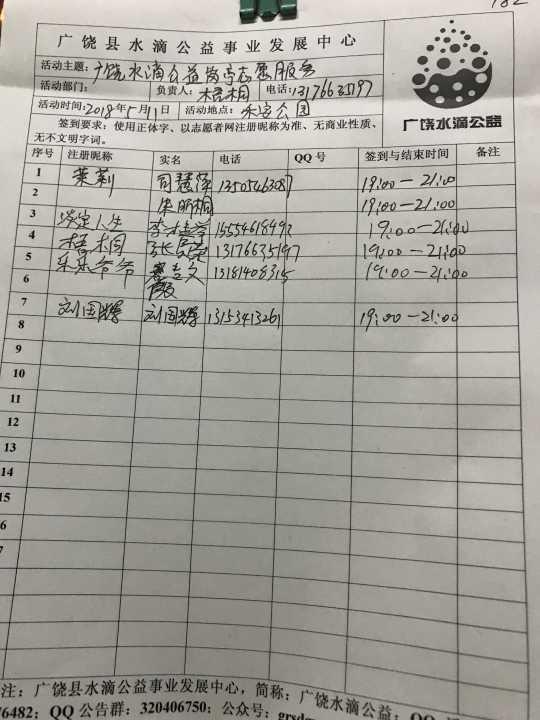 182
广饶县水滴公益事业发展中心
活动主题:广饶水滴公益岗亭志愿服务
活动部门: 负责人:梧桐 电话:13176635197
活动时间:2018年5月11日 活动地点:永安公园
签到要求:使用正体字、以志愿者网注册昵称为准、无商业性质、
无不文明字词。
广饶水滴公益
序号 注册昵称 实名 电话 QQ号 签到与结束时间 备注
1 茉莉 司慧萍 13505463087 19:00-21:00
2 19:00-21:00
3 淡定人生 1555461849 19:00-21:00
4 梧桐 13176635197 19:00-21:00
5 乐乐爷爷 13181408315 19:00-21:00
6
7 刘国辉 刘国辉 13153413261 19:00-21:00
8
9
10
11
12
13
14
15
6
7
注:广饶县水滴公益事业发展中心,简称:广饶水滴公益;
76482; QQ公告群:320406750; 公众号: